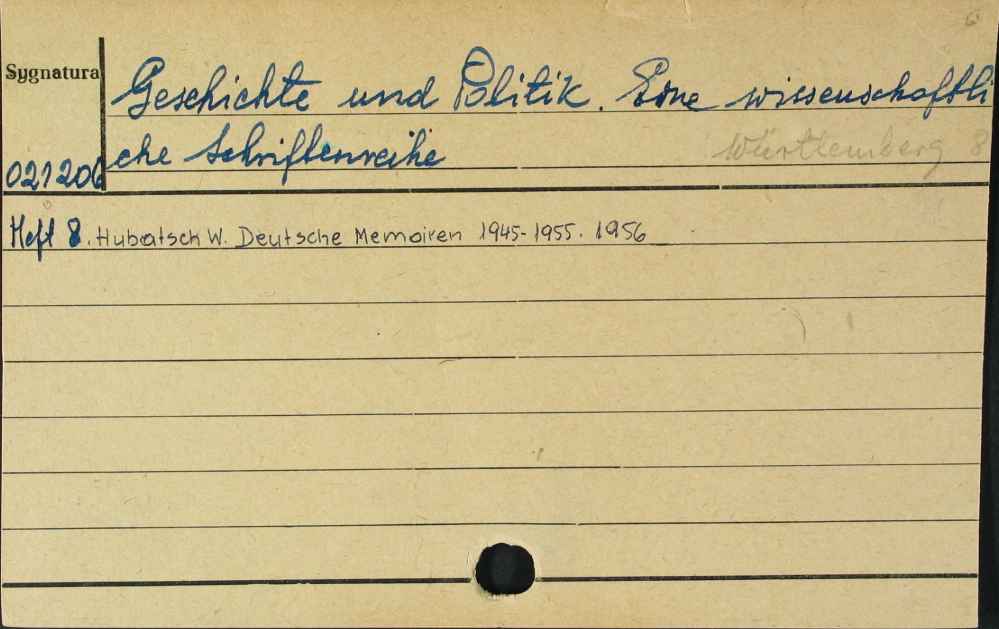 6
Sygnatura
Geschichte und Politik. Eine wissenschaftli
che Schriftenreihe
Württemberg 8
021206
Heft 8. Hubatsch W. Deutsche Memoiren 1945-1955. 1956